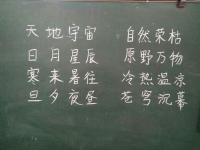 天地宇宙 自然荣枯
日月星辰 原野万物
寒来暑往 冷热温凉
旦夕夜昼 苍穹沉暮